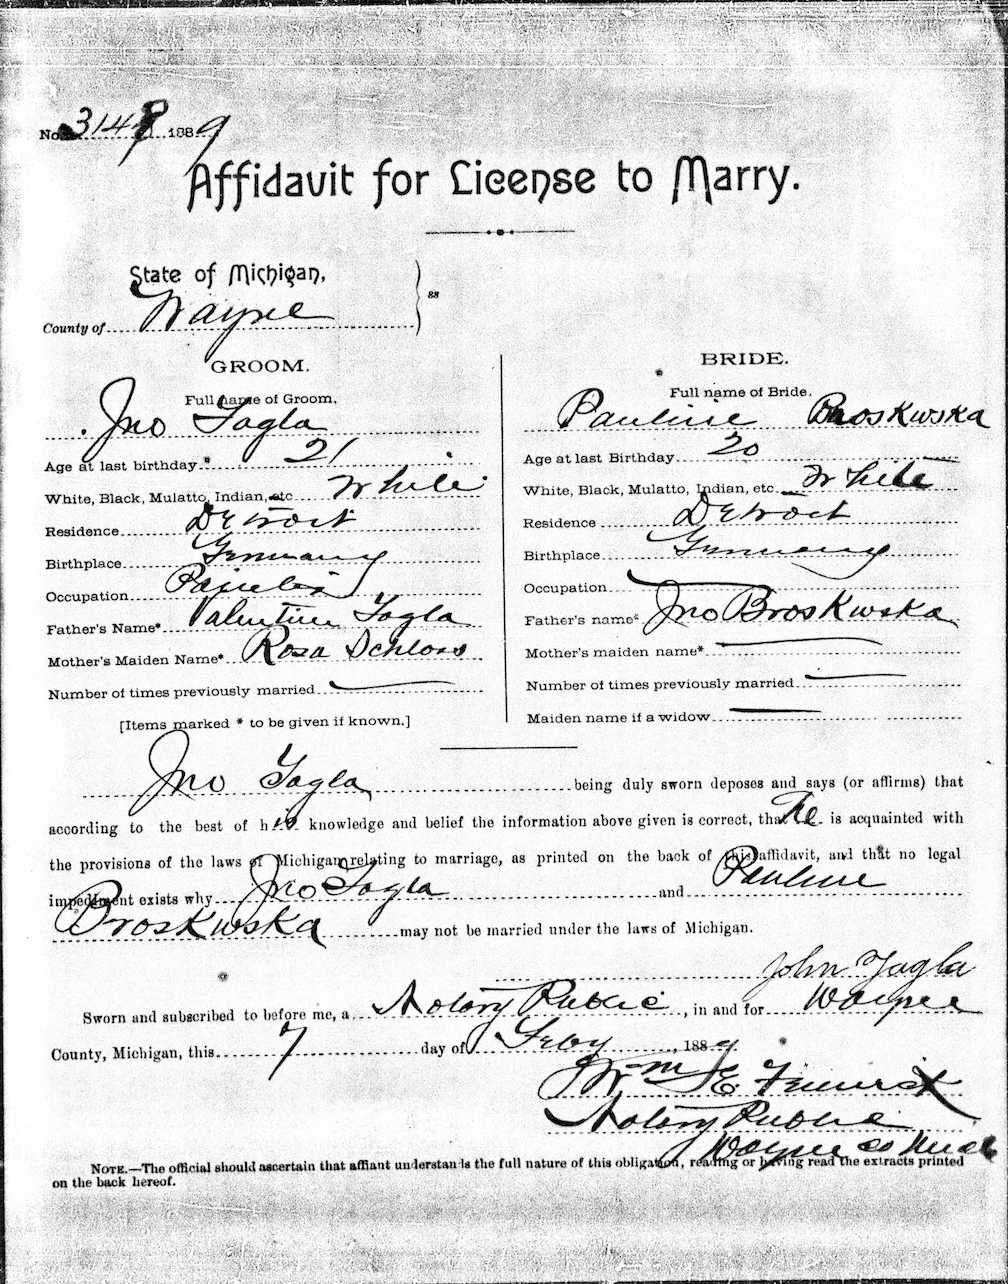 No. 3149 1889
Affidavit for License to Marry.
State of Michigan,
County of Wayne ss
GROOM.
Full name of Groom.
Jno Tagla
Age at last birthday 21
White, Black, Mulatto, Indian, etc White
Residence Detroit
Birthplace Germany
Occupation
Father's Name* Valentine Tagla
Mother's Maiden Name* Rosa Schloss
Number of times previously married
[Items marked * to be given if known.]
BRIDE.
Full name of Bride.
Pauline Broskwska
Age at last Birthday 20
White, Black, Mulatto, Indian, etc White
Residence Detroit
Birthplace Germany
Occupation
Father's name* Jno Broskwska
Mother's maiden name*
Number of times previously married
Maiden name if a widow
Jno Tagla being duly sworn deposes and says (or affirms) that
according to the best of his knowledge and belief the information above given is correct, that He is acquainted with
the provisions of the laws of Michigan relating to marriage, as printed on the back of this affidavit, and that no legal
impediment exists why Jno Tagla and Pauline
Broskwska may not be married under the laws of Michigan.
John Tagla
Sworn and subscribed to before me, a Notary Public, in and for Wayne
County, Michigan, this 7 day of Feby, 1889
Wm E.
Notary Public
Wayne Co Mich
NOTE.—The official should ascertain that affiant understands the full nature of this obligation, reading or having read the extracts printed
on the back hereof.